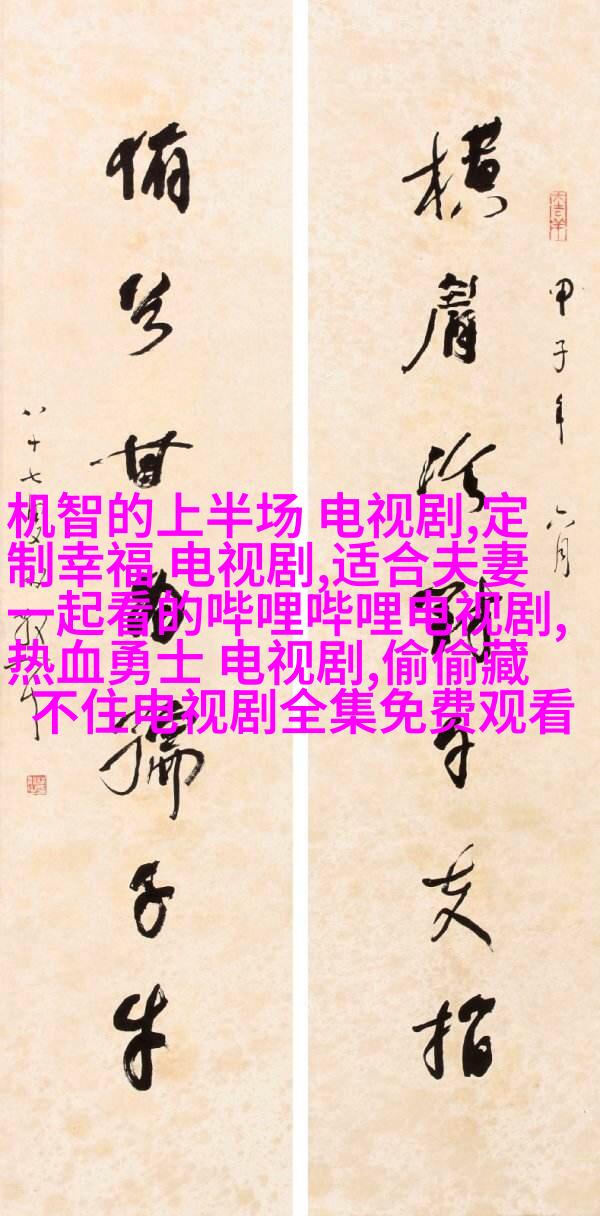 横眉冷對千夫指
甲子年六月
俯首甘為孺子牛
八十七叟
机智的上半场 电视剧,定
制幸福 电视剧,适合夫妻
一起看的哔哩哔哩电视剧,
热血勇士 电视剧,偷偷藏
不住电视剧全集免费观看